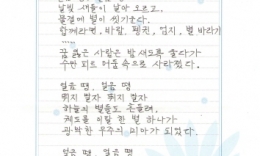 날빛 새들이 날아 오르고,
물결에 별이 씻기운다.
함께라면, 바람, 엄지, 별 바라기
.....
꿈 잃은 사람은 밤새도록 울다가
수만 피트 어둠 속으로 사라졌다.
얼음 땡, 얼음 땡
뛰지 말자 뛰지 말자
하늘의 별들도 흔들려,
궤도를 이탈 한 별 하나가
광막한 우주의 미아가 되었다.
얼음 땡, 얼음 땡